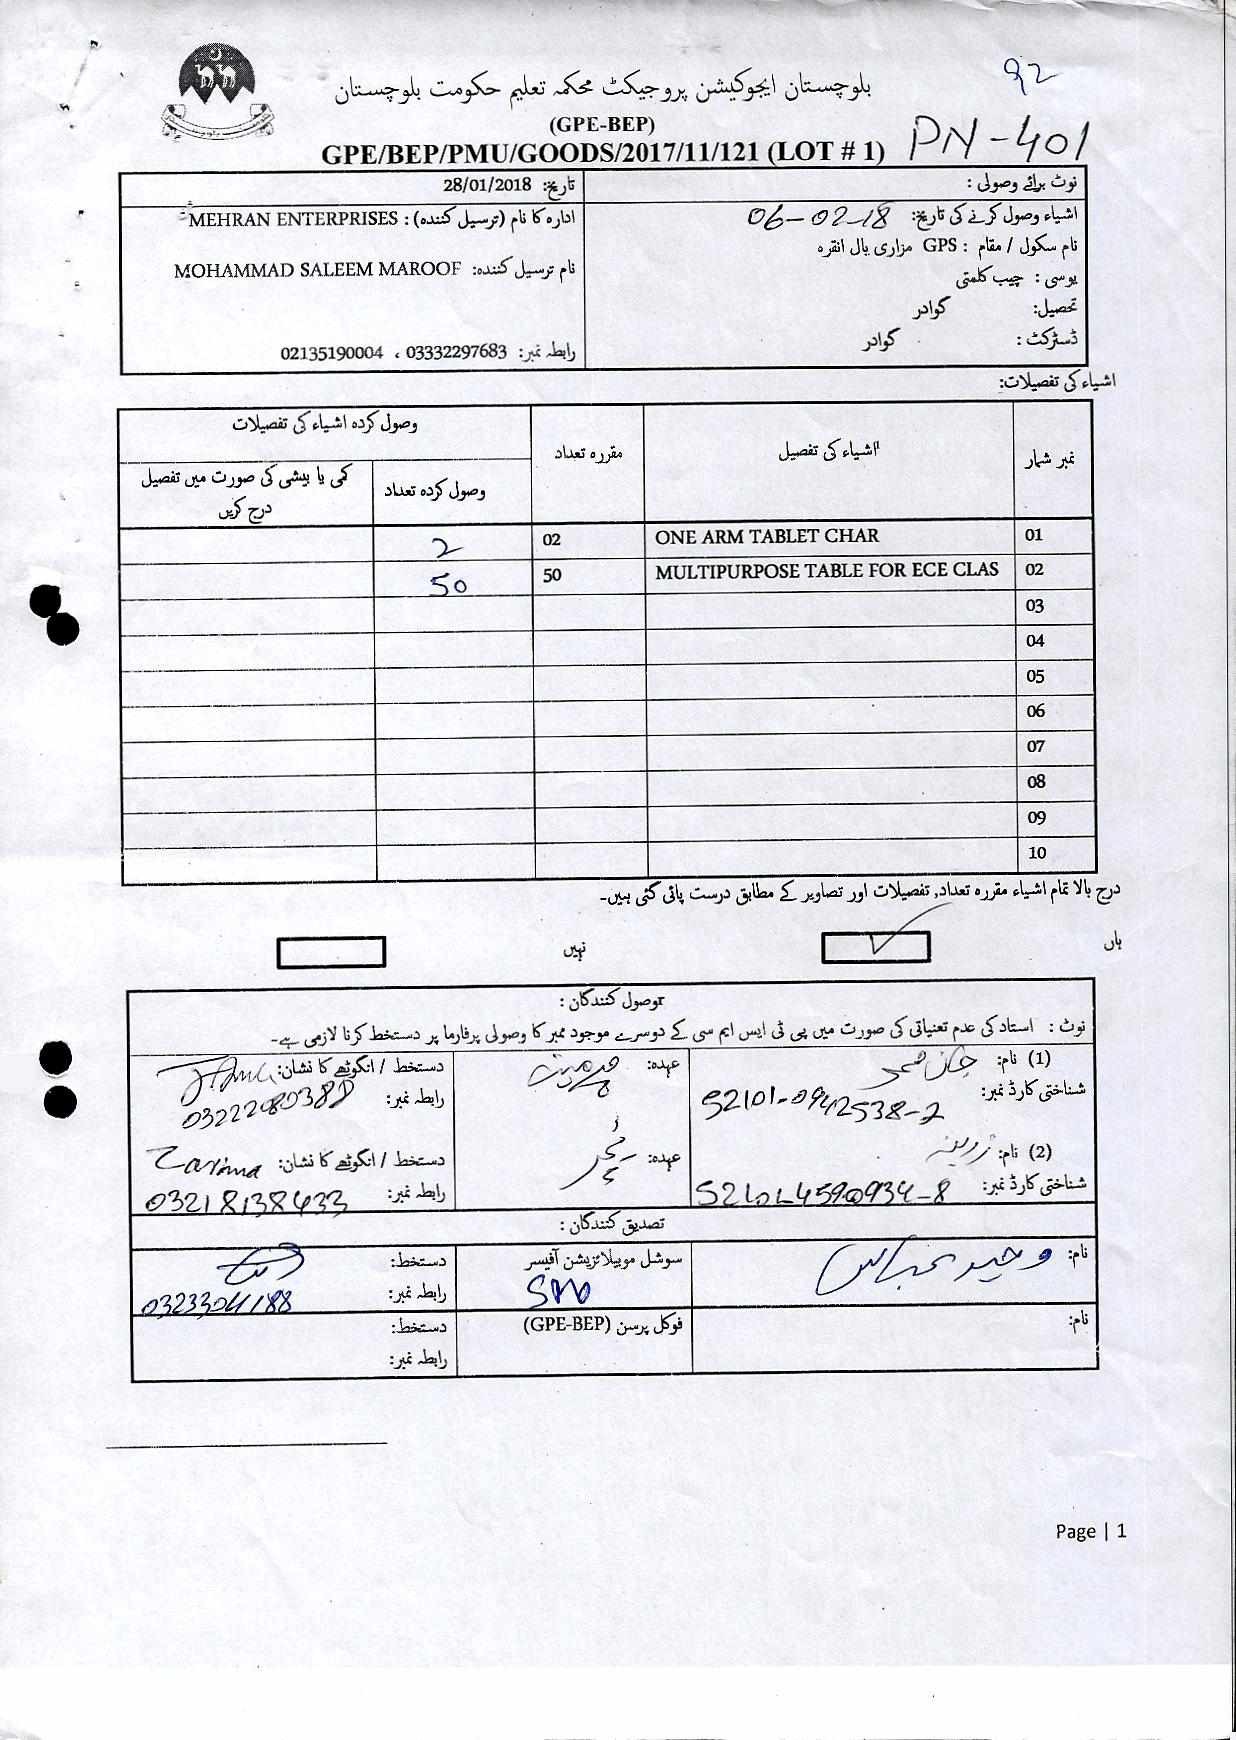 92
بلوچستان ایجوکیشن پروجیکٹ محکمہ تعلیم حکومت بلوچستان
(GPE-BEP)
GPE/BEP/PMU/GOODS/2017/11/121 (LOT # 1) PN-401
نوٹ برائے وصولی :
اشیاء وصول کرنے کی تاریخ: 06-02-18
نام سکول / مقام : GPS مزاری بال انقره
یو سی : چیب کلمتی
تحصیل: گوادر
ڈسٹرکٹ : گوادر
تاریخ: 28/01/2018
ادارہ کا نام (ترسیل کنندہ) : MEHRAN ENTERPRISES
نام ترسیل کنندہ: MOHAMMAD SALEEM MAROOF
رابطہ نمبر: 03332297683 ، 02135190004
اشیاء کی تفصیلات:
نمبر شمار اشیاء کی تفصیل مقررہ تعداد وصول کردہ اشیاء کی تفصیلات
وصول کردہ تعداد کمی یا بیشی کی صورت میں تفصیل درج کریں
01 ONE ARM TABLET CHAR 02 2
02 MULTIPURPOSE TABLE FOR ECE CLAS 50 50
03
04
05
06
07
08
09
10
درج بالا تمام اشیاء مقررہ تعداد, تفصیلات اور تصاویر کے مطابق درست پائی گئی ہیں۔
ہاں نہیں
وصول کنندگان :
نوٹ : استاد کی عدم تعنیاتی کی صورت میں پی ٹی ایس ایم سی کے دوسرے موجود ممبر کا وصولی پرفارما پر دستخط کرنا لازمی ہے۔
(1) نام: جان عہدہ: دستخط / انگوٹھے کا نشان:
شناختی کارڈ نمبر: 52101-0942538-2 رابطہ نمبر: 03222080388
(2) نام: زرینہ عہدہ: ٹیچر دستخط / انگوٹھے کا نشان: Zarina
شناختی کارڈ نمبر: رابطہ نمبر: 03218138433
تصدیق کنندگان :
نام: وحید عباس سوشل موبیلائزیشن آفیسر دستخط:
SMO رابطہ نمبر: 03233041188
نام: فوکل پرسن (GPE-BEP) دستخط:
رابطہ نمبر:
Page | 1